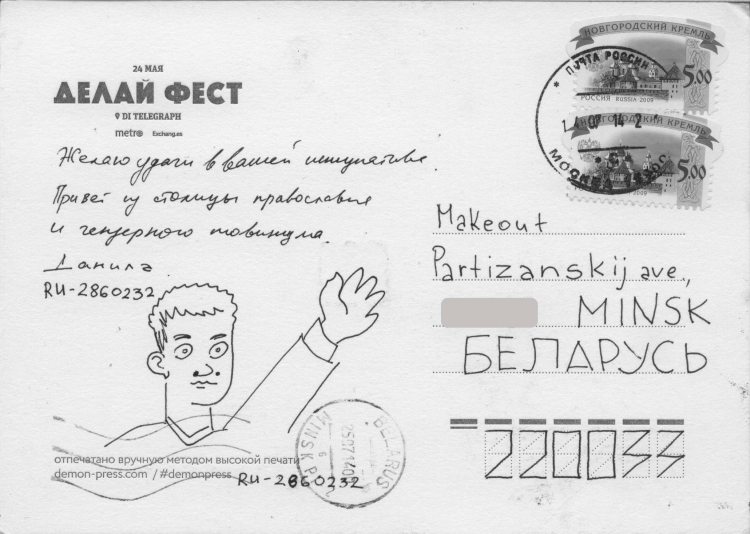 24 МАЯ
ДЕЛАЙ ФЕСТ
DI TELEGRAPH
metro Exchang.es
Желаю удачи в вашей инициативе.
Привет из столицы православия
и гендерного
Данила
RU-2860232
НОВГОРОДСКИЙ КРЕМЛЬ
5.00
РОССИЯ RUSSIA 2009
НОВГОРОДСКИЙ КРЕМЛЬ
5.00
2009
ПОЧТА РОССИИ
07 14 2
МОСКВА
Makeout
Partizanskij ave.,
MINSK
БЕЛАРУСЬ
220033
BELARUS
MINSK
250714
отпечатано вручную методом высокой печати
demon-press.com / #demonpress
RU-2860232